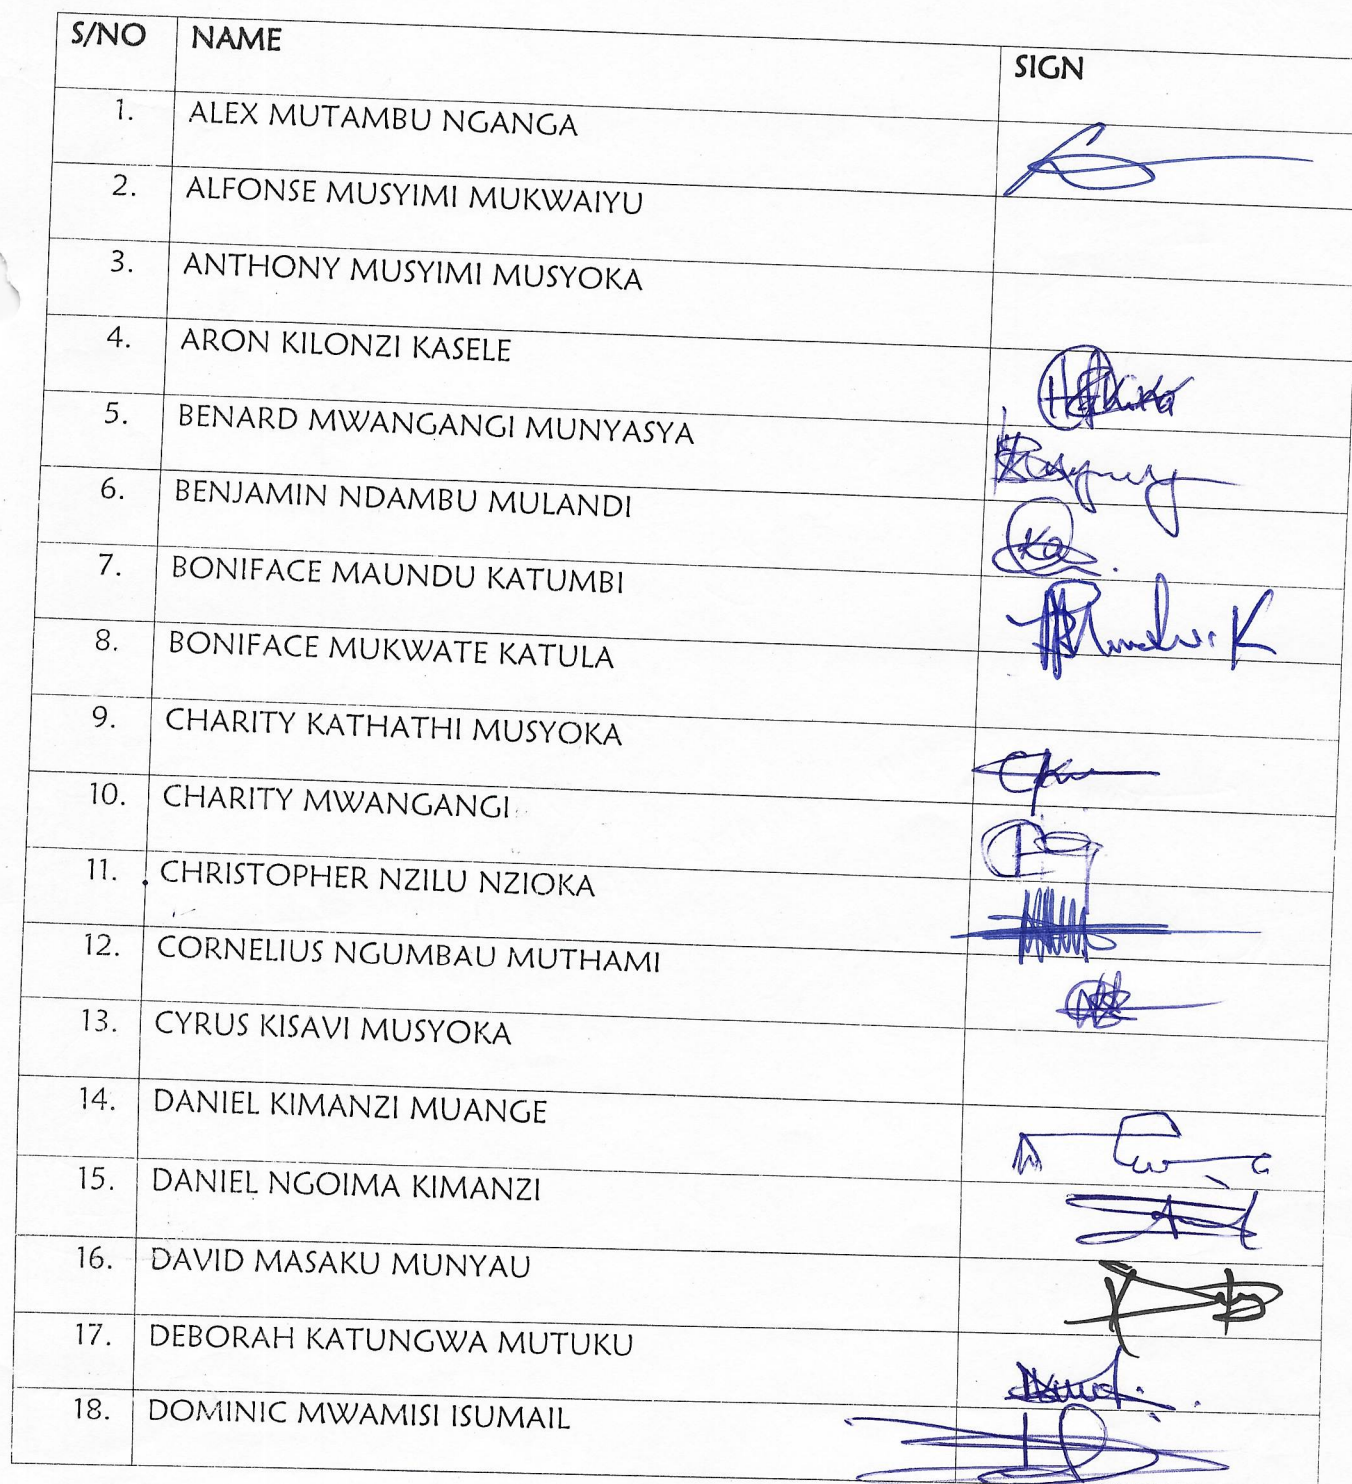 S/NO NAME SIGN
1. ALEX MUTAMBU NGANGA
2. ALFONSE MUSYIMI MUKWAIYU
3. ANTHONY MUSYIMI MUSYOKA
4. ARON KILONZI KASELE
5. BENARD MWANGANGI MUNYASYA
6. BENJAMIN NDAMBU MULANDI
7. BONIFACE MAUNDU KATUMBI
8. BONIFACE MUKWATE KATULA
9. CHARITY KATHATHI MUSYOKA
10. CHARITY MWANGANGI
11. CHRISTOPHER NZILU NZIOKA
12. CORNELIUS NGUMBAU MUTHAMI
13. CYRUS KISAVI MUSYOKA
14. DANIEL KIMANZI MUANGE
15. DANIEL NGOIMA KIMANZI
16. DAVID MASAKU MUNYAU
17. DEBORAH KATUNGWA MUTUKU
18. DOMINIC MWAMISI ISUMAIL